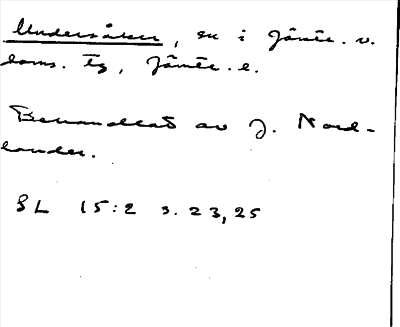 Undersåker, sn i Jämtl. v.
doms. tg, Jämtl. l.
Behandlat av J. Nord-
lander.
SL 15:2 s. 23, 25